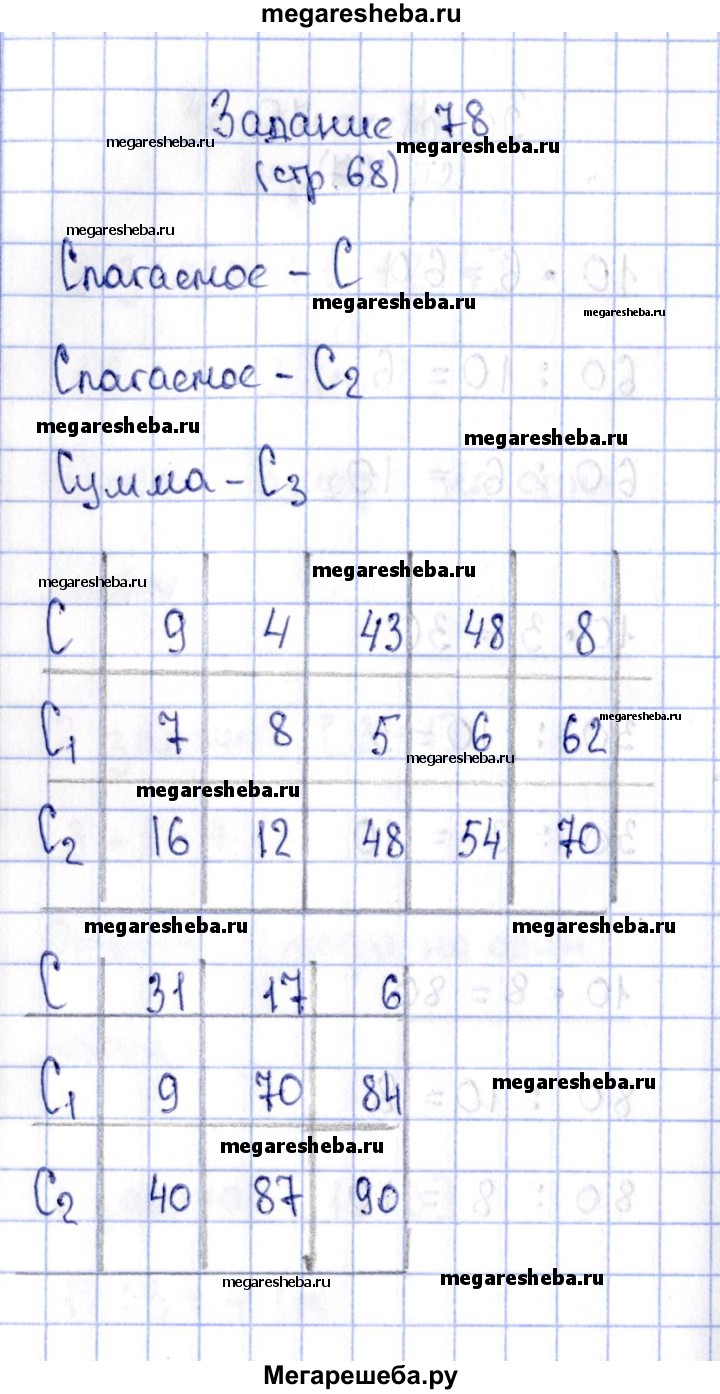 megaresheba.ru
Задание 78
megaresheba.ru
megaresheba.ru
(стр. 68)
megaresheba.ru
Слагаемое - С
megaresheba.ru
megaresheba.ru
Слагаемое - С2
megaresheba.ru
megaresheba.ru
Сумма - С3
megaresheba.ru
megaresheba.ru
С 9 4 43 48 8
megaresheba.ru
С1 7 8 5 6 62
megaresheba.ru
megaresheba.ru
С2 16 12 48 54 70
megaresheba.ru
megaresheba.ru
С 31 17 6
megaresheba.ru
С1 9 70 84
megaresheba.ru
С2 40 87 90
megaresheba.ru
megaresheba.ru
Мегарешеба.ру